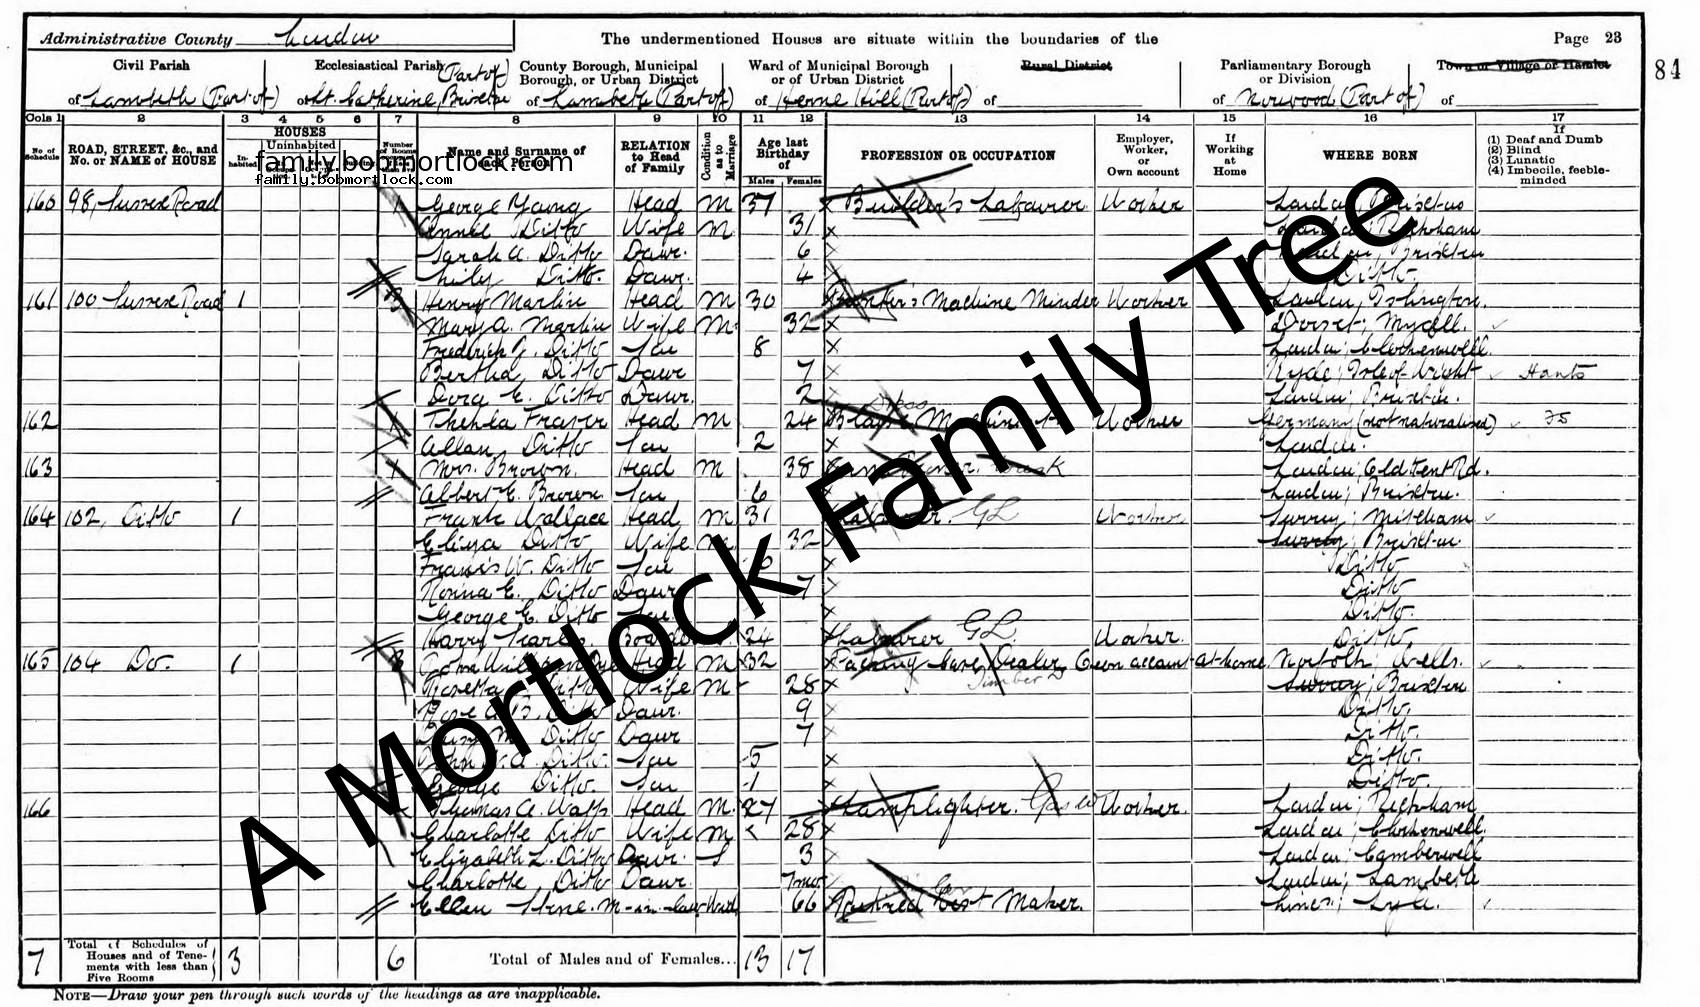 Administrative County London The undermentioned Houses are situate within the boundaries of the Page 23
84
Civil Parish Ecclesiastical Parish County Borough, Municipal Borough, or Urban District Ward of Municipal Borough or of Urban District Rural District Parliamentary Borough or Division Town or Village or Hamlet
of Lambeth (Part of) of St. Catherine, Brixton (Part of) of Lambeth (Part of) of Herne Hill (Part of) of of Norwood (Part of) of
Cols 1 2 3 4 5 6 7 8 9 10 11 12 13 14 15 16 17
No. of Schedule ROAD, STREET, &c., and No. or NAME of HOUSE HOUSES Inhabited Uninhabited Name and Surname of each Person RELATION to Head of Family Condition as to Marriage Age last Birthday of Males Females PROFESSION OR OCCUPATION Employer, Worker, or Own account If Working at Home WHERE BORN If (1) Deaf and Dumb (2) Blind (3) Lunatic (4) Imbecile, feeble-minded
family.bobmortlock.com
family.bobmortlock.com
160 98, Sussex Road 1 George Young Head M 37 Builder's Labourer Worker London, Brixton
Annie Ditto Wife M 31 London, Peckham
Sarah A. Ditto Daur. 6 London, Brixton
Lily Ditto. Daur. 4 Ditto.
161 100 Sussex Road 1 3 Henry Martin Head M 30 Printer's Machine Minder Worker London, Islington.
Mary A. Martin Wife M 32 Dorset;
Frederick J. Ditto Son 8 London; Clerkenwell.
Bertha Ditto Daur 7 Ryde; Isle of Wight Hants
Dora E. Ditto Daur. 2 London; Brixton.
162 1 Thekla Fraser Head M 24 Dress Machinist Worker Germany (not naturalised)
Allan Ditto Son 2 London.
163 1 Mrs. Brown. Head M 38 London; Old Kent Rd.
Albert E. Brown Son 6 London; Brixton.
164 102, Ditto 1 Frank Wallace Head M 31 Labourer. GL Worker Surrey; Mitcham
Eliza Ditto Wife M 32 Surrey; Brixton.
Francis W. Ditto Son Ditto
E. Ditto Daur 7 Ditto
George E. Ditto Son Ditto.
Harry Boarder 24 Labourer GL. Worker. Ditto
165 104 Do. 1 3 Head M 32 Packing Case Dealer Timber D Own account At home Norfolk; Wells.
Rosetta Ditto Wife M 28 Surrey; Brixton
Rose A. B. Ditto Daur. 9 Ditto.
Daisy M. Ditto Daur 7 Ditto.
John Ditto. Son 5 Ditto
George Ditto. Son 1 Ditto
166 Thomas A. Watts Head M. 27 Lamplighter. Gas W Worker. London; Peckham
Charlotte Ditto Wife M 28 London; Clerkenwell.
Elizabeth L. Ditto Daur. S 3 London; Camberwell
Charlotte Ditto Daur. 7 mos. London; Lambeth
Ellen M-in-law Wid 66 Retired Vest Maker.
7 Total of Schedules of Houses and of Tenements with less than Five Rooms 3 6 Total of Males and of Females... 13 17
NOTE—Draw your pen through such words of the headings as are inapplicable.
A Mortlock Family Tree